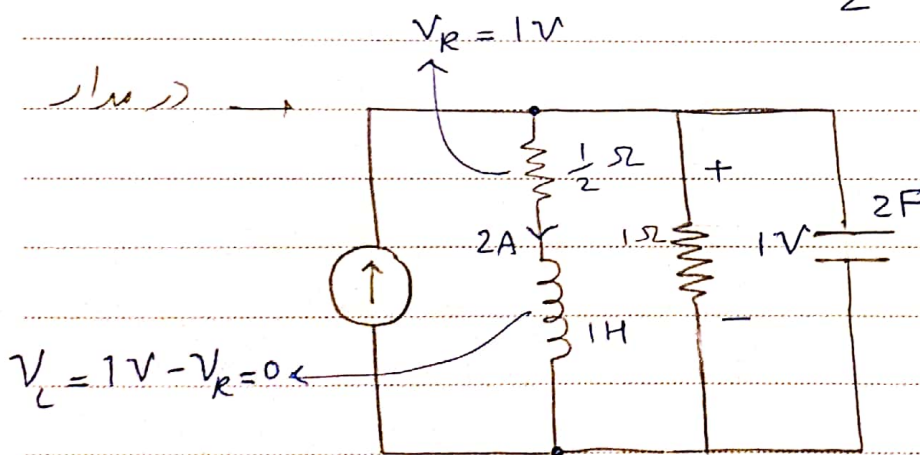 2
V_R = 1V
در مدار →
1/2 Ω
+
2F
2A
1Ω
1V
1H
−
V_L = 1V - V_R = 0